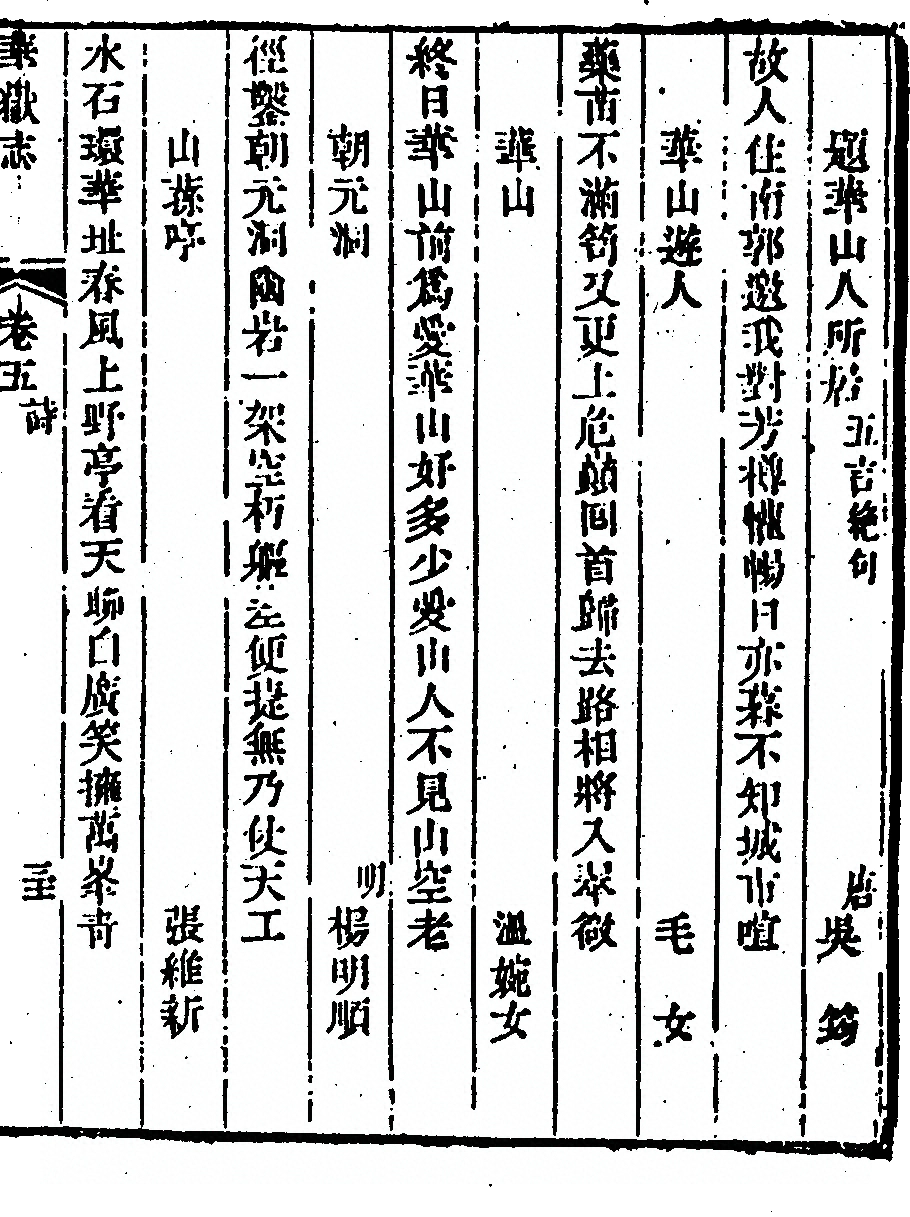 題華山人所居五言絕句 唐吳筠
故人住南郭邀我對芳樽懽暢日亦蕣不知城市喧
華山遊人 毛女
藥苗不滿笥又更上危顛回首歸去路相將入翠微
華山 溫婉女
終日華山前為愛華山好多少愛山人不見山空老
朝元洞 明楊明順
徑鑿朝元洞幽岩一架空朽艱左便提無乃仗天工
山蓀亭 張維新
水石環華址春風上野亭看天聊自廣笑擁萬峯青
華嶽志 卷五 詩